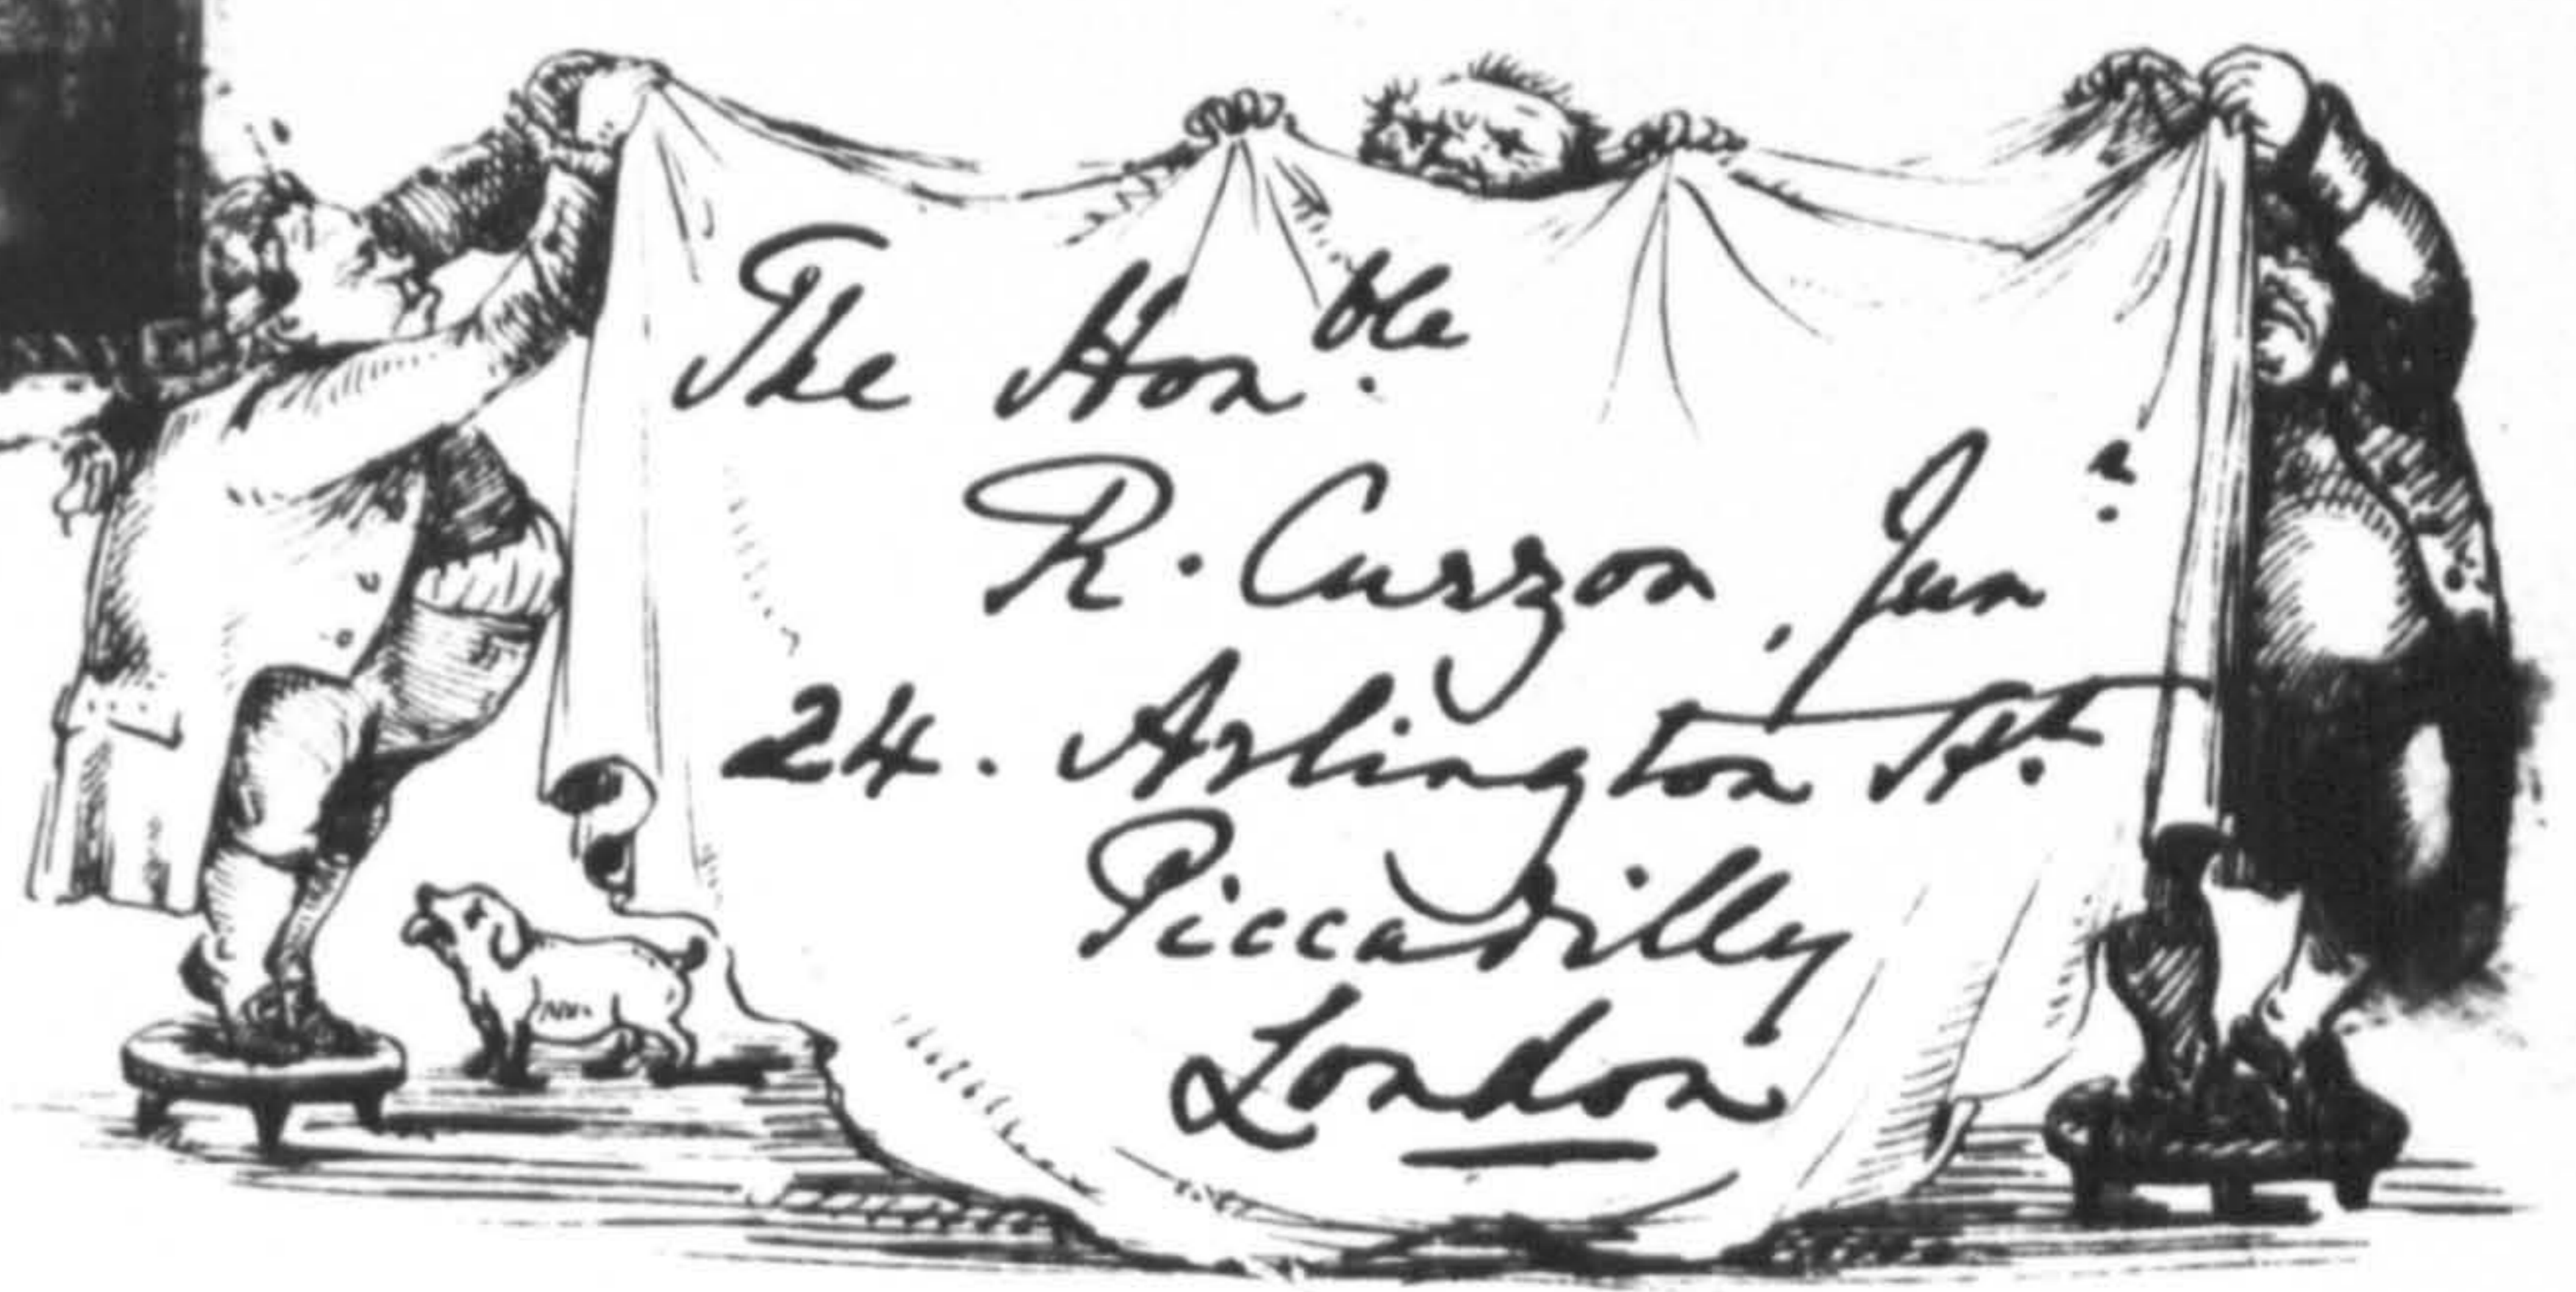 The Hon.ble
R. Curzon, Jun.r
24. Arlington St.
Piccadilly
London